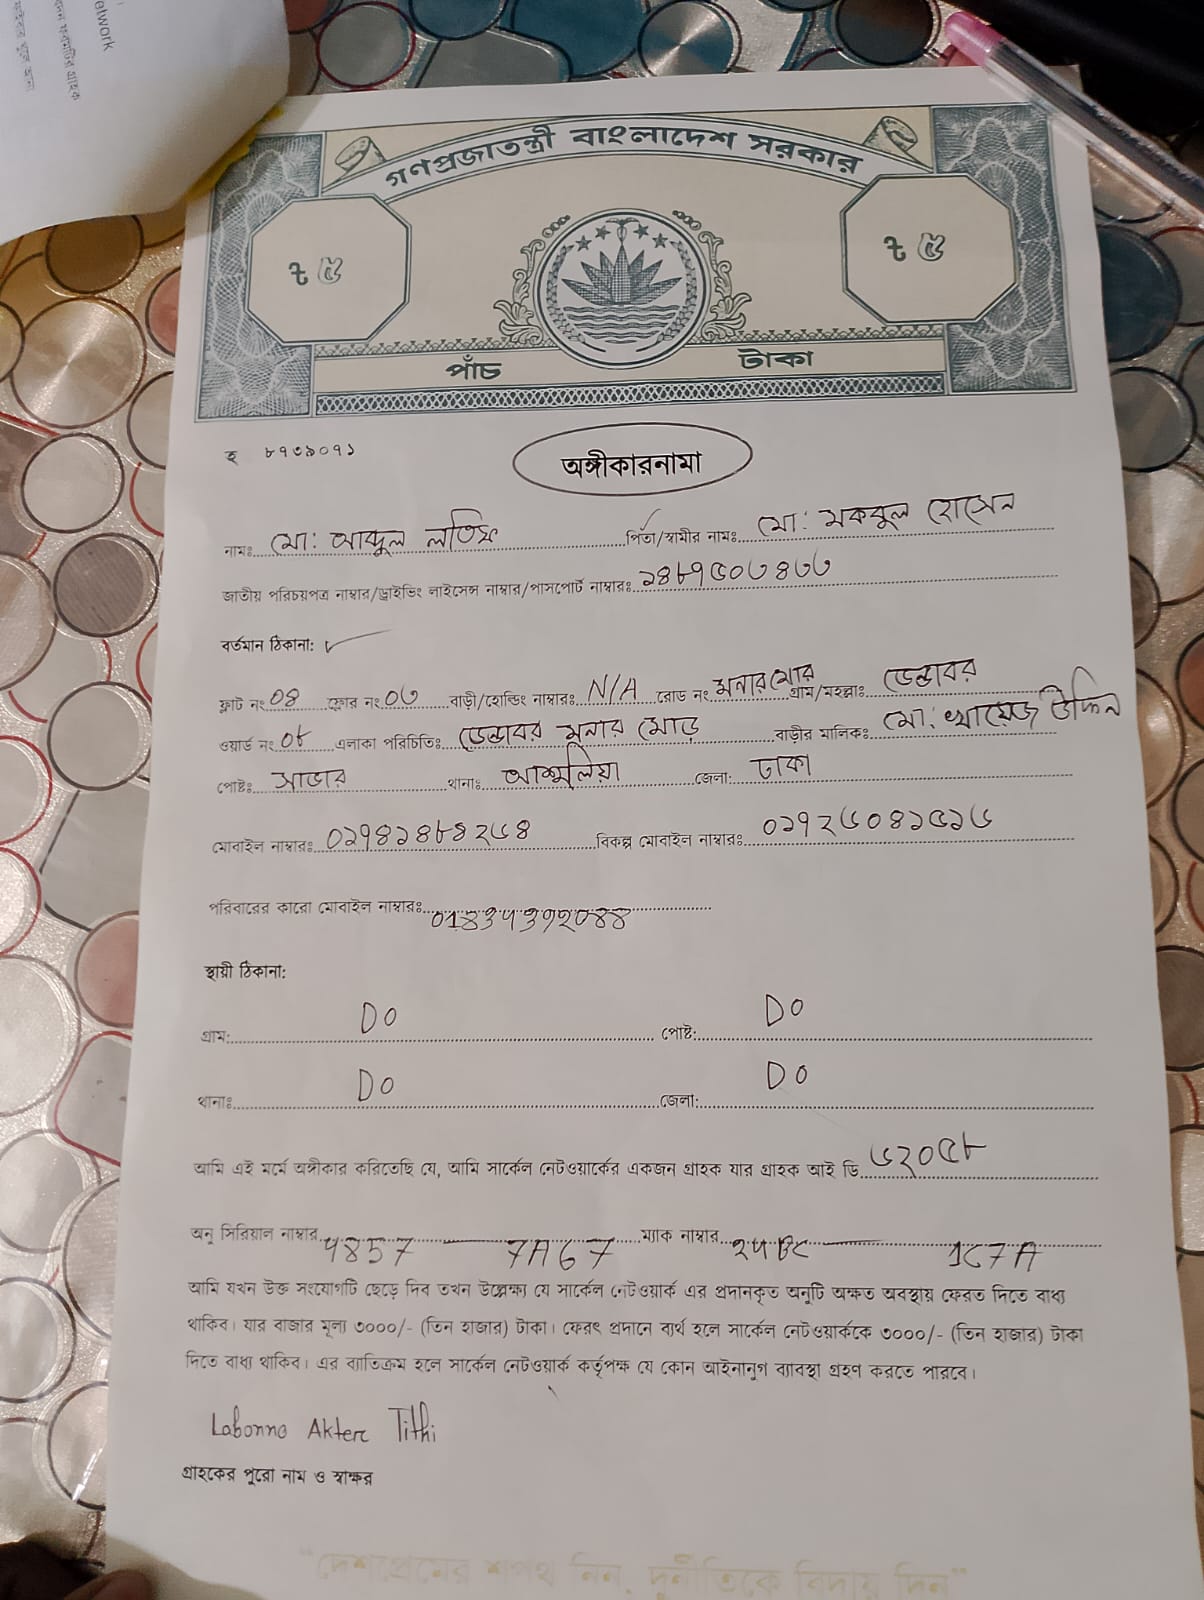 etwork
গণপ্রজাতন্ত্রী বাংলাদেশ সরকার
৳ ৫ ৳ ৫
পাঁচ টাকা
হ ৮৭৩৯০৭১
অঙ্গীকারনামা
নামঃ মো: আব্দুল লতিফ পিতা/স্বামীর নামঃ মো: মকবুল হোসেন
জাতীয় পরিচয়পত্র নাম্বার/ড্রাইভিং লাইসেন্স নাম্বার/পাসপোর্ট নাম্বারঃ ১৪৮৭৫০৩৪৩৩
বর্তমান ঠিকানা:
ফ্লাট নংঃ 04 ফ্লোর নংঃ ০৩ বাড়ী/হোল্ডিং নাম্বারঃ N/A রোড নং গ্রাম/মহল্লাঃ ডেন্ডাবর
ওয়ার্ড নংঃ ০৮ এলাকা পরিচিতিঃ ডেন্ডাবর মুনার মোড় বাড়ীর মালিকঃ মো: খায়েজ উদ্দিন
পোষ্টঃ সাভার থানাঃ আশুলিয়া জেলা: ঢাকা
মোবাইল নাম্বারঃ ০১৭৪১৪৮৪২৬৪ বিকল্প মোবাইল নাম্বারঃ ০১৭২৬০৪১৫১৬
পরিবারের কারো মোবাইল নাম্বারঃ
স্থায়ী ঠিকানা:
গ্রাম: DO পোষ্ট: DO
থানাঃ DO জেলা: DO
আমি এই মর্মে অঙ্গীকার করিতেছি যে, আমি সার্কেল নেটওয়ার্কের একজন গ্রাহক যার গ্রাহক আই ডি ৬২০৫৮
অনু সিরিয়াল নাম্বার 7A67 ম্যাক নাম্বার 1C7A
আমি যখন উক্ত সংযোগটি ছেড়ে দিব তখন উল্লেক্ষ্য যে সার্কেল নেটওয়ার্ক এর প্রদানকৃত অনুটি অক্ষত অবস্থায় ফেরত দিতে বাধ্য
থাকিব। যার বাজার মূল্য ৩০০০/- (তিন হাজার) টাকা। ফেরৎ প্রদানে ব্যর্থ হলে সার্কেল নেটওয়ার্ককে ৩০০০/- (তিন হাজার) টাকা
দিতে বাধ্য থাকিব। এর ব্যতিক্রম হলে সার্কেল নেটওয়ার্ক কর্তৃপক্ষ যে কোন আইনানুগ ব্যাবস্থা গ্রহণ করতে পারবে।
Labonno Akter Tithi
গ্রাহকের পুরো নাম ও স্বাক্ষর
"দেশপ্রেমের শপথ নিন, দুর্নীতিকে বিদায় দিন"